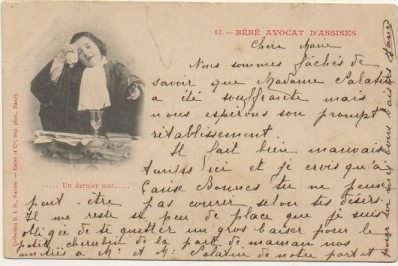 10. — BÉBÉ AVOCAT D'ASSISES
Chère
Nous sommes fâchés de
savoir que Madame Salatin
a été souffrante mais
nous espérons son prompt
rétablissement
Il fait bien mauvais
ici et je crois qu'à
tu ne peux
..... Un dernier mot.....
peut-être pas courir selon tes désirs.
Il me reste si peu de place que je suis
obligée de te quitter un gros baiser pour le
petit cherubin de la part de maman nos
amitiés à M. et Mme Salatin de notre part et
pour toi mes bons baisers
Collection G. I. D., Nantes. — Royer et Cie, imp. phot., Nancy.